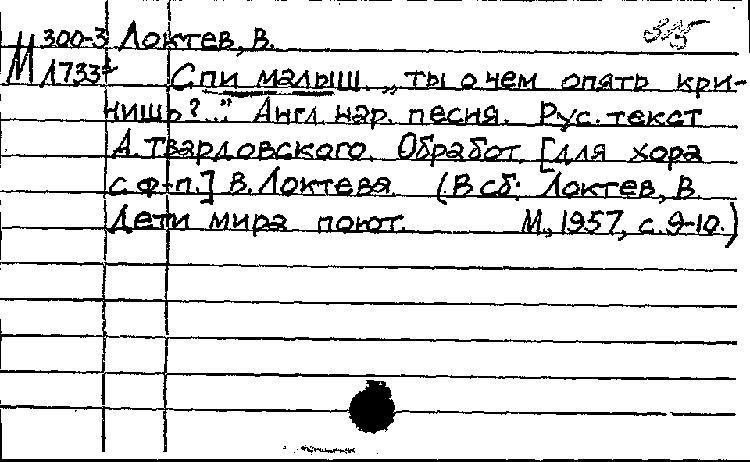 М 300-3 Локтев, В.
1733
Спи малыш. „ты о чем опять кри-
чишь?..." Англ. нар. песня. Рус. текст
А. Твардовского. Обработ. [для хора
с ф-п.] В. Локтева. (В сб: Локтев, В.
Дети мира поют. М., 1957, с. 9-10.)